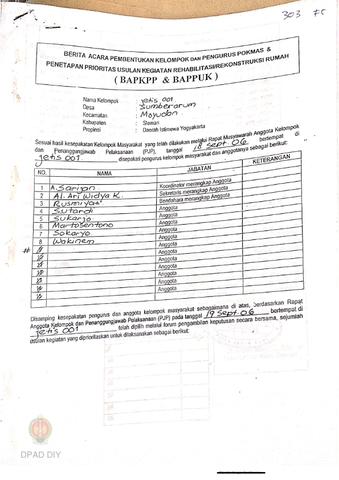 303 75
BERITA ACARA PEMBENTUKAN KELOMPOK DAN PENGURUS POKMAS &
PENETAPAN PRIORITAS USULAN KEGIATAN REHABILITASI/REKONSTRUKSI RUMAH
( BAPKPP & BAPPUK )
Nama Kelompok : Jetis 001
Desa : Sumberarum
Kecamatan : Moyudan
Kabupaten : Sleman
Propinsi : Daerah Istimewa Yogyakarta
Sesuai hasil kesepakatan Kelompok Masyarakat yang telah dilakukan melalui Rapat Musyawarah Anggota Kelompok
dan Penanggungjawab Pelaksanaan (PJP), tanggal 18 sept 06 bertempat di
Jetis 001 disepakati pengurus kelompok masyarakat dan anggotanya sebagai berikut:
NO. NAMA JABATAN KETERANGAN
1 A. Sariyan Koordinator merangkap Anggota
2 Al. Ari Widya K. Sekretaris merangkap Anggota
3 Rusmiyati Bendahara merangkap Anggota
4 Sutardi Anggota
5 Sukarjo Anggota
6 Martosentono Anggota
7 Sokaryo Anggota
8 Wakinem Anggota
# 9 Anggota
10 Anggota
11 Anggota
12 Anggota
13 Anggota
14 Anggota
15 Anggota
Disamping kesepakatan pengurus dan anggota kelompok masyarakat sebagaimana di atas, berdasarkan Rapat
Anggota Kelompok dan Penanggungjawab Pelaksanaan (PJP) pada tanggal 19 Sept 06 bertempat di
Jetis 001 telah dipilih melalui forum pengambilan keputusan secara bersama, sejumlah
usulan kegiatan yang diprioritaskan untuk dilaksanakan sebagai berikut:
DPAD DIY